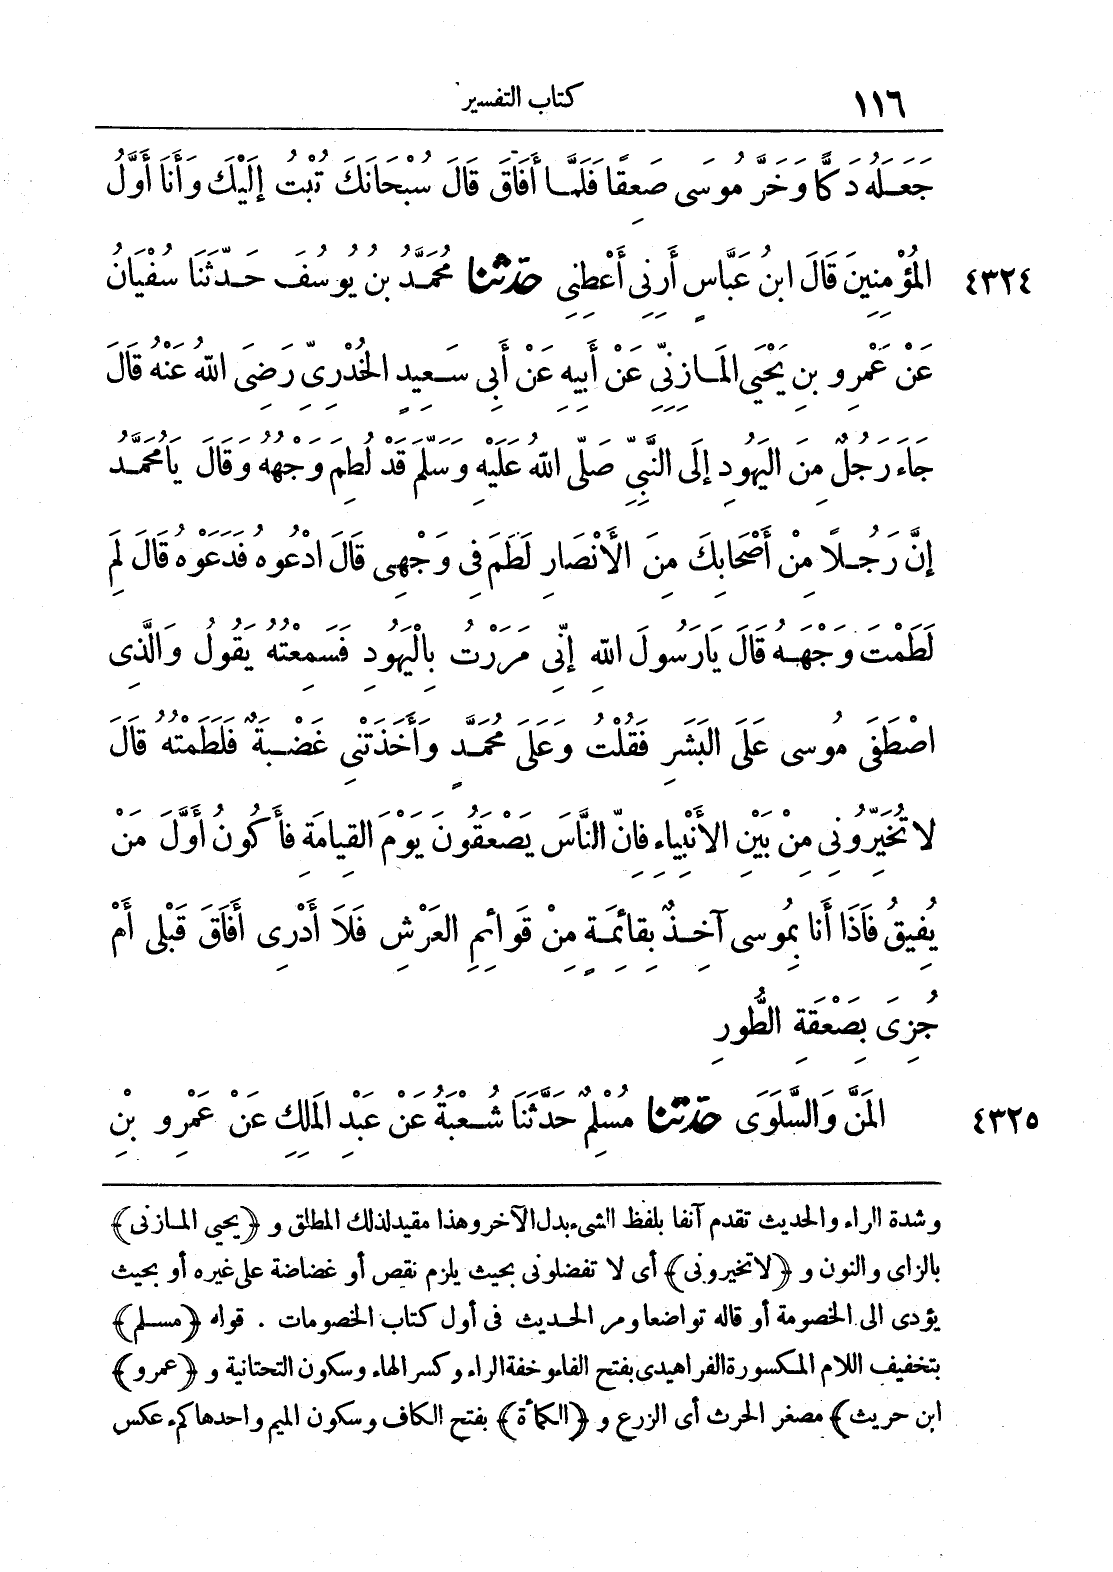 ١١٦ كتاب التفسير
جَعَلَهُ دَكًّا وَخَرَّ مُوسَى صَعِقًا فَلَمَّا أَفَاقَ قَالَ سُبْحَانَكَ تُبْتُ إِلَيْكَ وَأَنَا أَوَّلُ
٤٣٢٤ المُؤْمِنِينَ قَالَ ابنُ عَبَّاسٍ أَرِنِى أَعْطِنِى حَدَّثَنَا مُحَمَّدُ بنُ يُوسُفَ حَدَّثَنَا سُفْيَانُ
عَنْ عَمْرِو بنِ يَحْيَى المَازِنِىِّ عَنْ أَبِيهِ عَنْ أَبِى سَعِيدٍ الخُدْرِىِّ رَضِىَ اللّٰهُ عَنْهُ قَالَ
جَاءَ رَجُلٌ مِنَ اليَهُودِ إِلَى النَّبِىِّ صَلَّى اللّٰهُ عَلَيْهِ وَسَلَّمَ قَدْ لُطِمَ وَجْهُهُ وَقَالَ يَامُحَمَّدُ
إِنَّ رَجُلًا مِنْ أَصْحَابِكَ مِنَ الأَنْصَارِ لَطَمَ فِى وَجْهِى قَالَ ادْعُوهُ فَدَعَوْهُ قَالَ لِمَ
لَطَمْتَ وَجْهَهُ قَالَ يَارَسُولَ اللّٰهِ إِنِّى مَرَرْتُ بِالْيَهُودِ فَسَمِعْتُهُ يَقُولُ وَالَّذِى
اصْطَفَى مُوسَى عَلَى البَشَرِ فَقُلْتُ وَعَلَى مُحَمَّدٍ وَأَخَذَتْنِى غَضْبَةٌ فَلَطَمْتُهُ قَالَ
لَا تُخَيِّرُونِى مِنْ بَيْنِ الأَنْبِيَاءِ فَانَّ النَّاسَ يَصْعَقُونَ يَوْمَ القِيَامَةِ فَأَكُونُ أَوَّلَ مَنْ
يُفِيقُ فَاذَا أَنَا بِمُوسَى آخِذٌ بِقَائِمَةٍ مِنْ قَوَائِمِ العَرْشِ فَلَا أَدْرِى أَفَاقَ قَبْلِى أَمْ
جُزِىَ بِصَعْقَةِ الطُّورِ
٤٣٢٥ المَنَّ وَالسَّلْوَى حَدَّثَنَا مُسْلِمٌ حَدَّثَنَا شُعْبَةُ عَنْ عَبْدِ المَلِكِ عَنْ عَمْرِو بْنِ
وشدة الراء والحديث تقدم آنفا بلفظ الشىء بدل الآخر وهذا مقيد لذلك المطلق و ﴿يحيى المازنى﴾
بالزاى والنون و ﴿لا تخيرونى﴾ أى لا تفضلونى بحيث يلزم نقص أو غضاضة على غيره أو بحيث
يؤدى الى الخصومة أو قاله تواضعا ومر الحديث فى أول كتاب الخصومات . قوله ﴿مسلم﴾
بتخفيف اللام المكسورة الفراهيدى بفتح الفاء وخفة الراء وكسر الهاء وسكون التحتانية و ﴿عمرو﴾
ابن حريث﴾ مصغر الحرث أى الزرع و ﴿الكمأة﴾ بفتح الكاف وسكون الميم واحدها كمء عكس